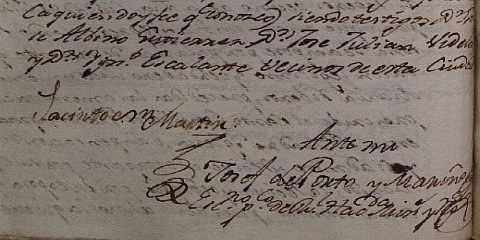 a quien doy fee q.e conosco, siendo testigos D.n
Albino Gutierrez, D.n Jose Julian Videla
y D.n Ign.o Escalante Vecinos de esta Ciudad
Jacinto Martin
Ante mi
Josef de Porto y Mariño